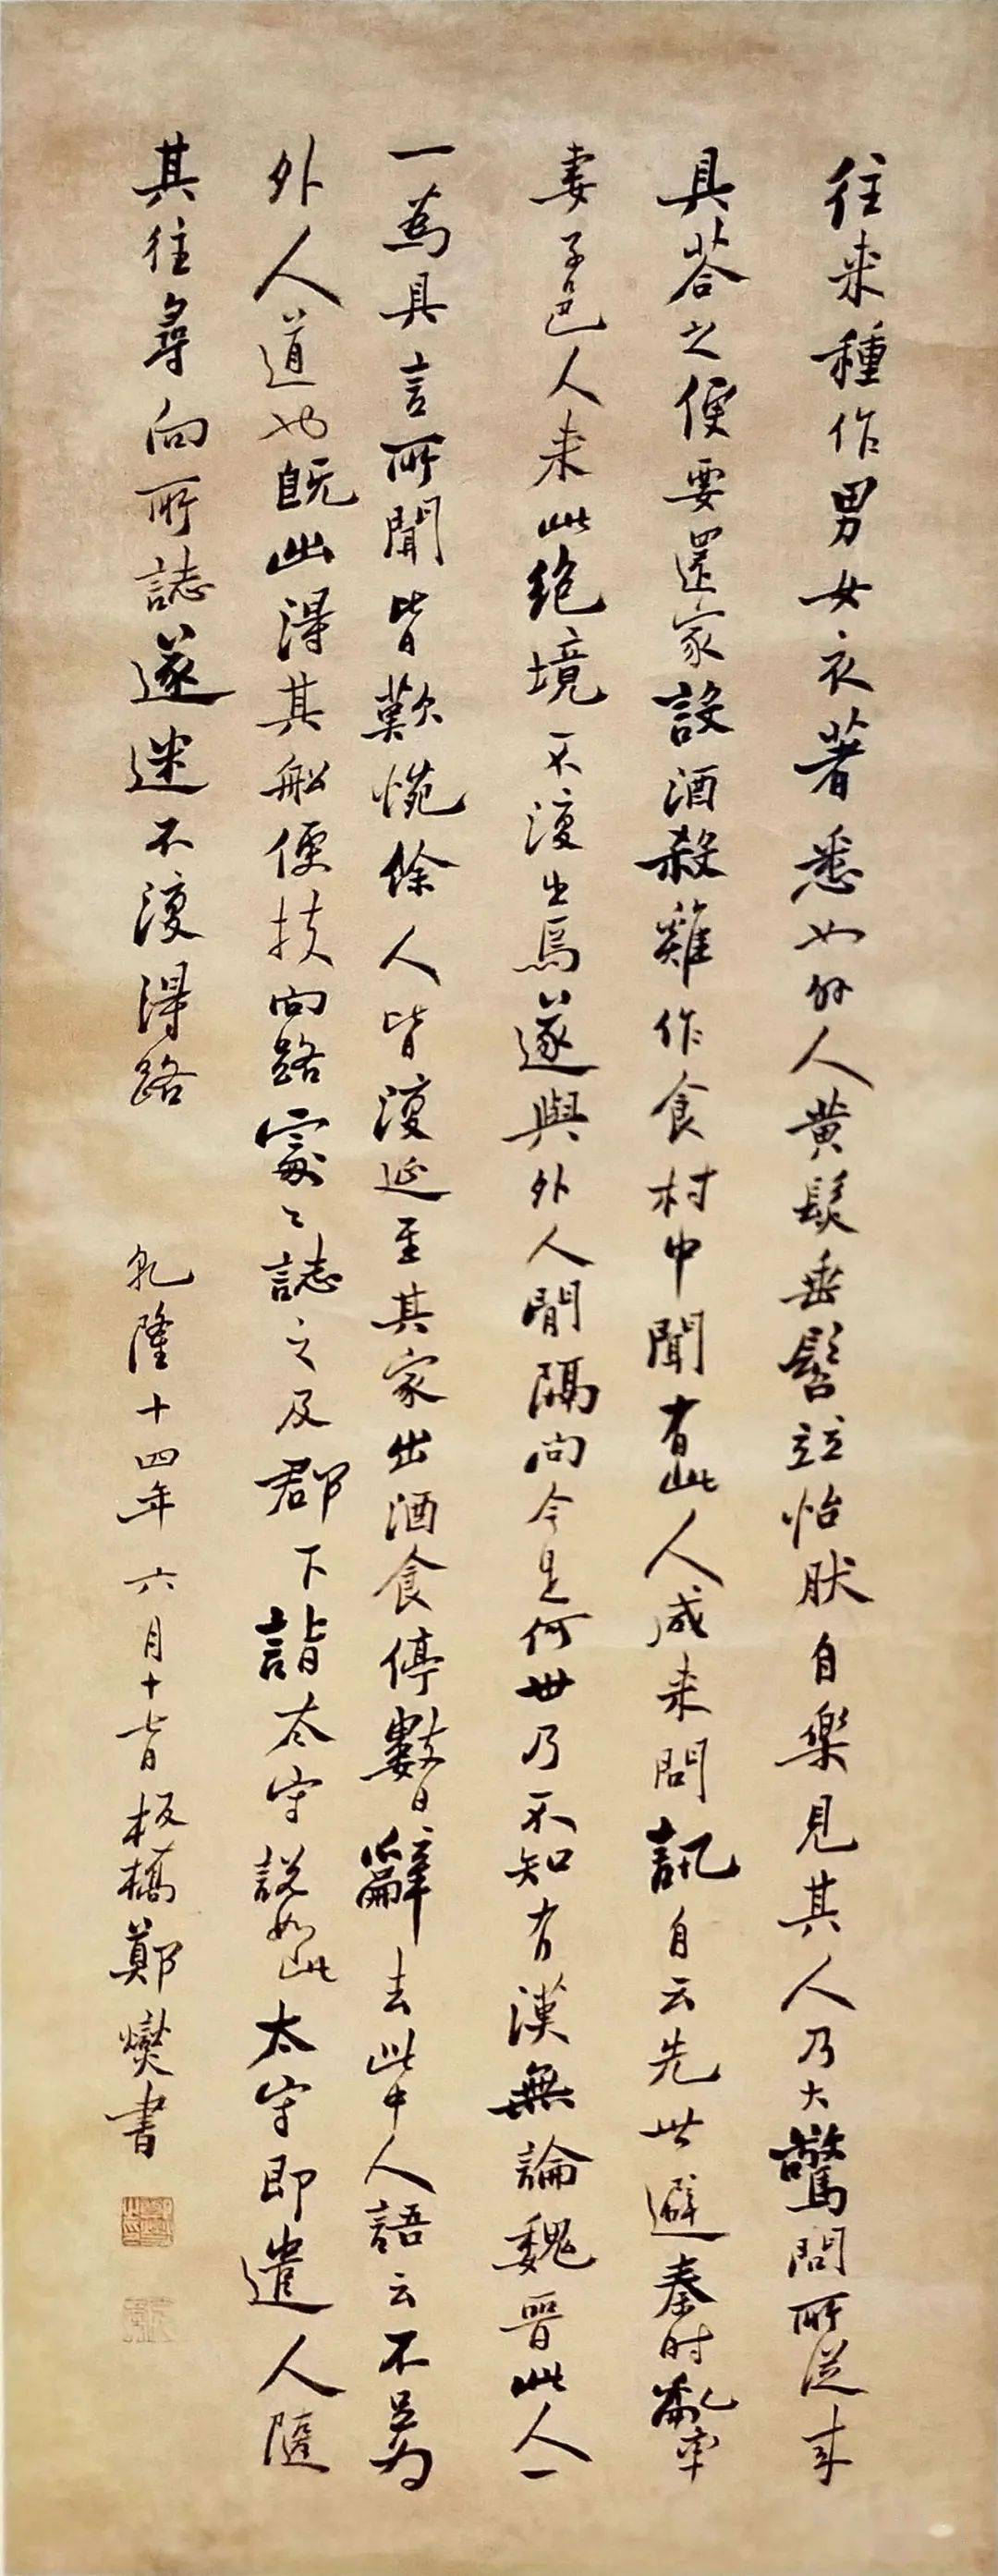 往来種作男女衣著悉如外人黄髮垂髫竝怡肰自樂見其人乃大驚問所從来
具荅之便要還家設酒殺雞作食村中聞有此人咸来問訊自云先世避秦時亂率
妻子邑人来此絶境不復出焉遂與外人間隔問今是何世乃不知有漢無論魏晋此人一
一為具言所聞皆歎惋餘人皆復延至其家出酒食停數日辭去此中人語云不足為
外人道也既出得其船便扶向路處〻誌之及郡下詣太守説如此太守即遣人隨
其往尋向所誌遂迷不復得路
乾隆十四年六月十七日板橋鄭燮書